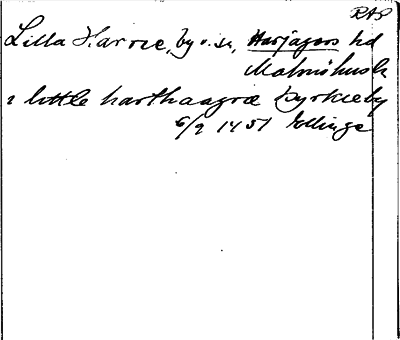 RAP
Lilla Harrie, by o. sn, Harjagers hd
Malmöhus l
i little harthaagræ kyrkieby
6/2 1451 Ellinge